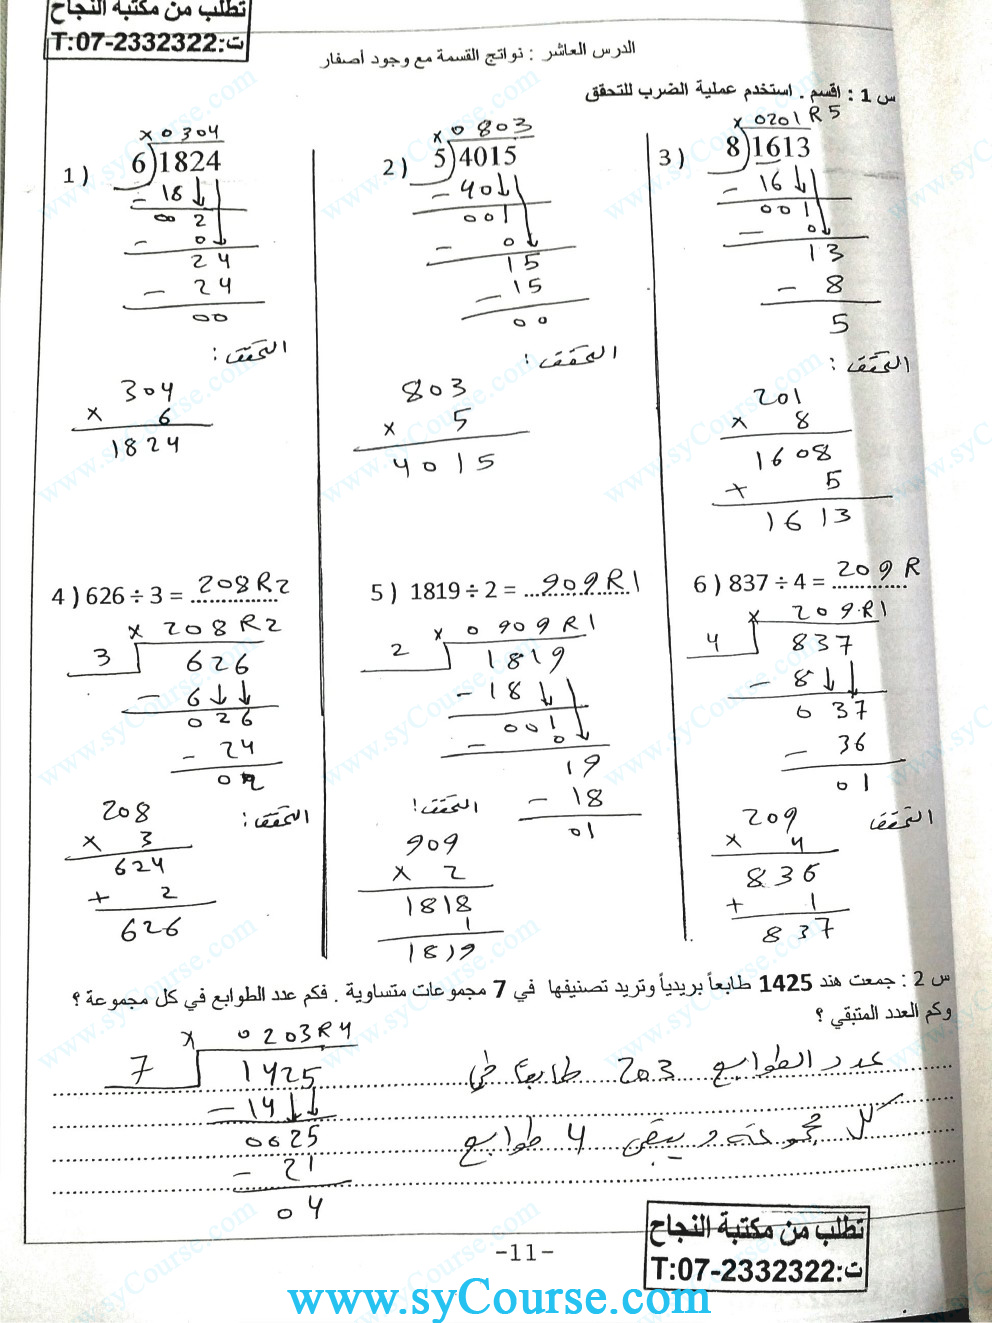 تطلب من مكتبة النجاح
ت:T:07-2332322
الدرس العاشر : نواتج القسمة مع وجود أصفار
س 1 : اقسم . استخدم عملية الضرب للتحقق
1 )
x 0304
6)1824
- 18
00 2
- 0
24
- 24
00
التحقق :
304
x 6
1824
2 )
x 0 803
5)4015
- 40
001
- 0
15
- 15
00
التحقق :
803
x 5
4015
3 )
x 0201 R 5
8)1613
- 16
001
- 0
13
- 8
5
التحقق :
201
x 8
1608
+ 5
1613
4 ) 626 ÷ 3 = 208 R2
x 208 R2
3 626
- 6
026
- 24
02
التحقق :
208
x 3
624
+ 2
626
5 ) 1819 ÷ 2 = 909 R1
x 0 909 R1
2 1819
- 18
001
- 0
19
- 18
01
التحقق :
909
x 2
1818
1
1819
6 ) 837 ÷ 4 = 209 R
x 209 R1
4 837
- 8
037
- 36
01
التحقق
209
x 4
836
+ 1
837
س 2 : جمعت هند 1425 طابعاً بريدياً وتريد تصنيفها في 7 مجموعات متساوية . فكم عدد الطوابع في كل مجموعة ؟
وكم العدد المتبقي ؟
x 0 203 R4
7 1425
- 14
0025
- 21
04
عدد الطوابع 203 طابعاً في
كل مجموعة ويبقى 4 طوابع
تطلب من مكتبة النجاح
ت:T:07-2332322
-11-
www.syCourse.com